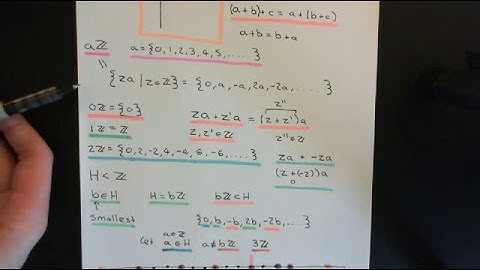 (a+b)+c = a+(b+c)
a+b = b+a
aℤ a={0,1,2,3,4,5,.....}
{za | z∈ℤ} = {0, a, -a, 2a, -2a, .....}
0ℤ = {0}
1ℤ = ℤ
2ℤ = {0, 2, -2, 4, -4, 6, -6, .....}
z''
za + z'a = (z + z')a
z, z' ∈ ℤ z'' ∈ ℤ
za + -za
(z+(-z))a
0
H < ℤ
b ∈ H H = bℤ bℤ ⊂ H
smallest
{0, b, -b, 2b, -2b, ....}
Let a∈ℤ
a∈H a∉bℤ 3ℤ